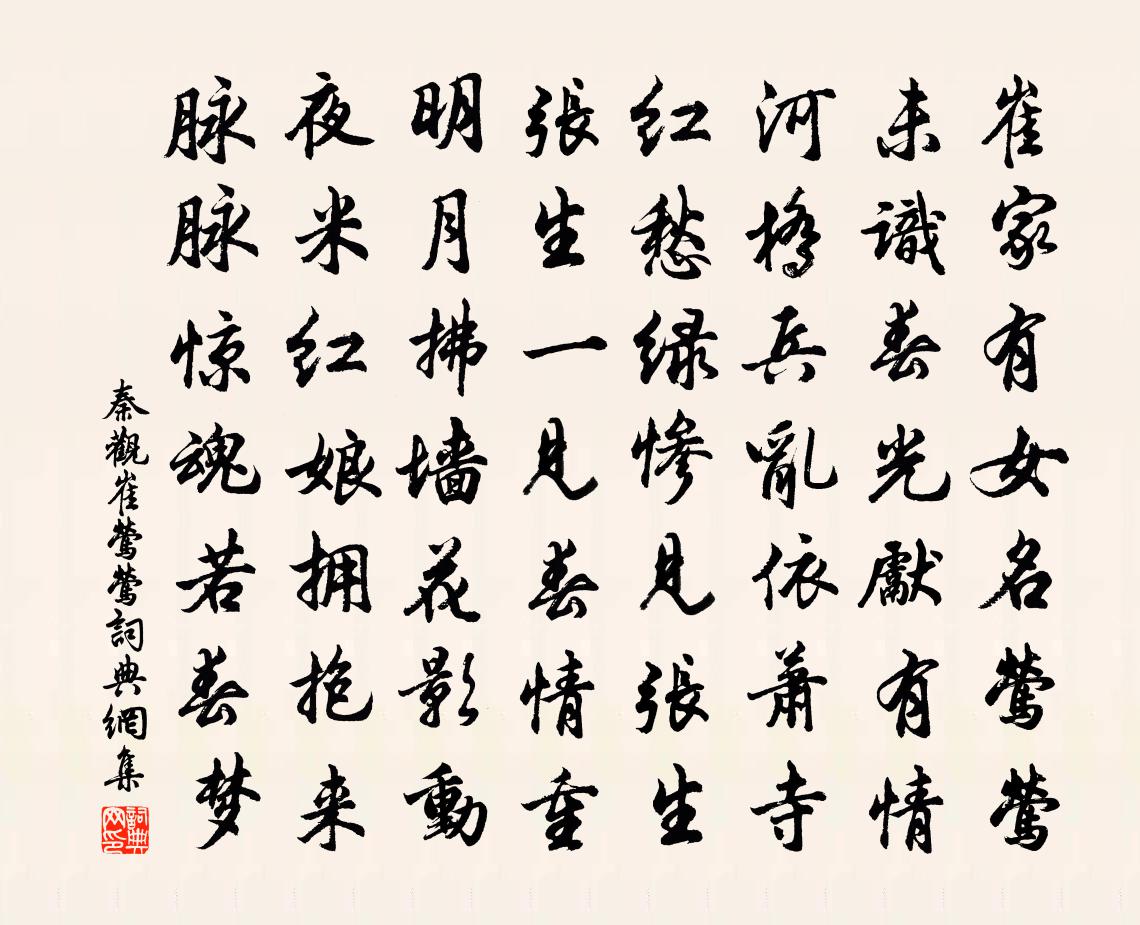 崔家有女名鶯鶯
未識春光獻有情
河橋兵亂依蕭寺
红愁緑惨見張生
張生一見春情重
明月拂墙花影動
夜米红娘拥抱来
脉脉惊魂若春梦
秦觀崔鶯鶯詞典網集
詞典网印